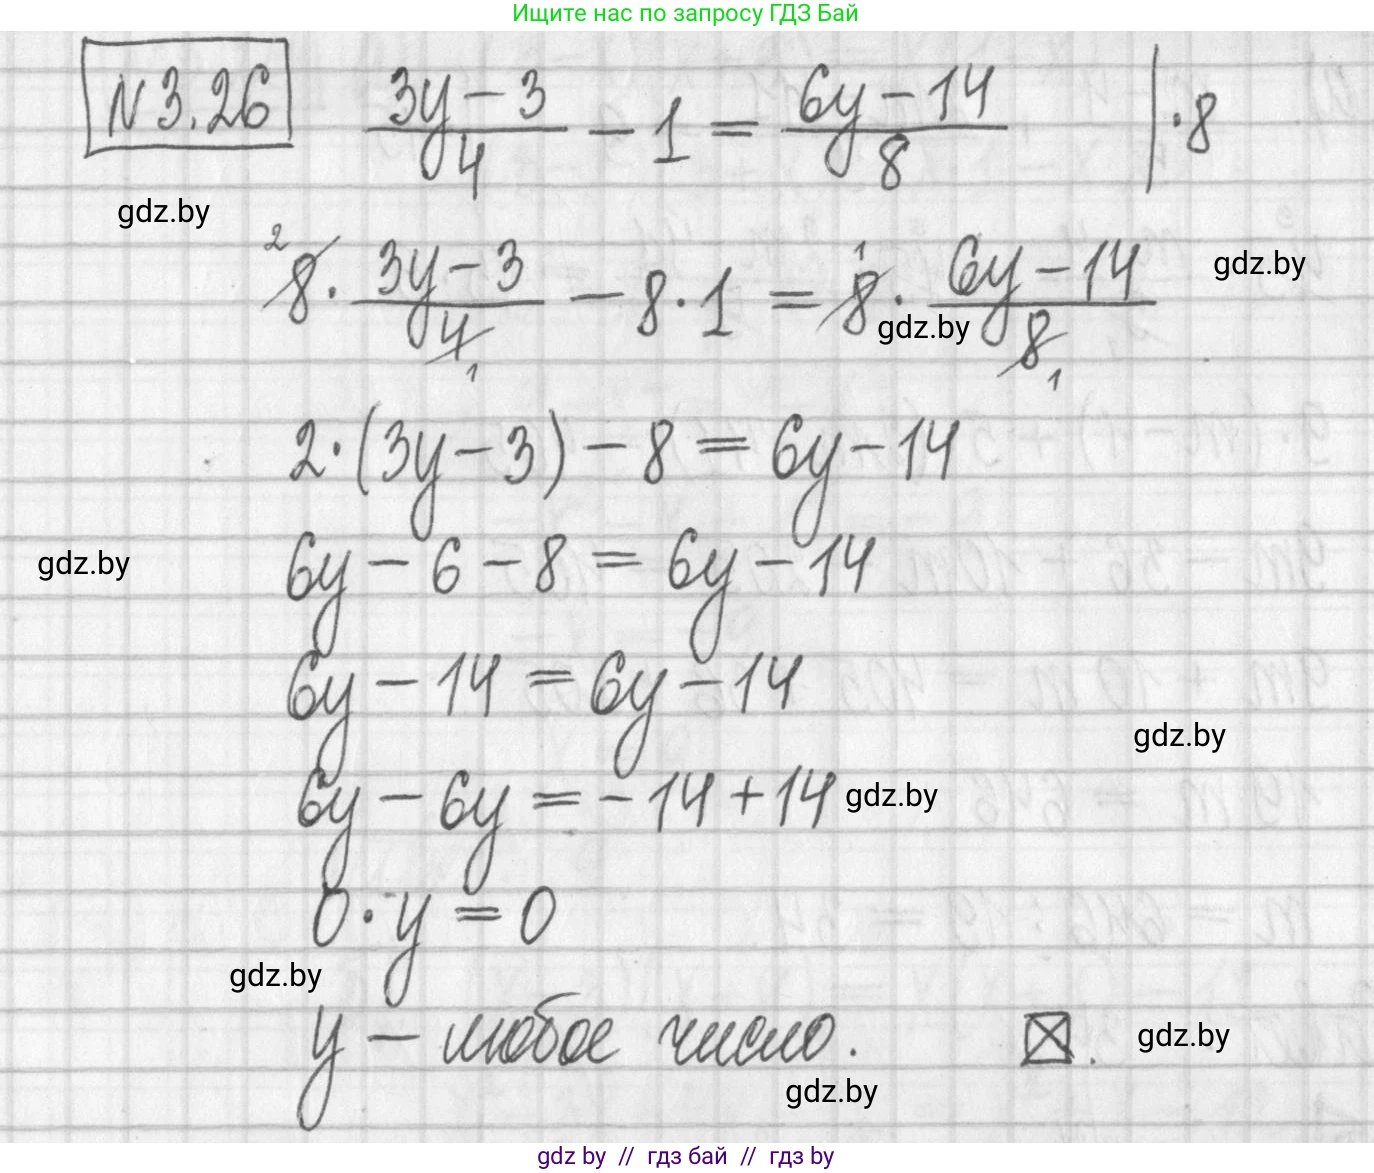 Ищите нас по запросу ГДЗ Бай
N 3.26 (3y − 3)/4 − 1 = (6y − 14)/8 | ·8
gdz.by
²8 · (3y − 3)/4₁ − 8 · 1 = ¹8 · (6y − 14)/8₁
gdz.by
gdz.by
2·(3y − 3) − 8 = 6y − 14
6y − 6 − 8 = 6y − 14
gdz.by
6y − 14 = 6y − 14
gdz.by
6y − 6y = −14 + 14
gdz.by
0 · y = 0
gdz.by
y − любое число. ☒.
gdz.by
gdz.by
gdz by // гдз бай // гдз by